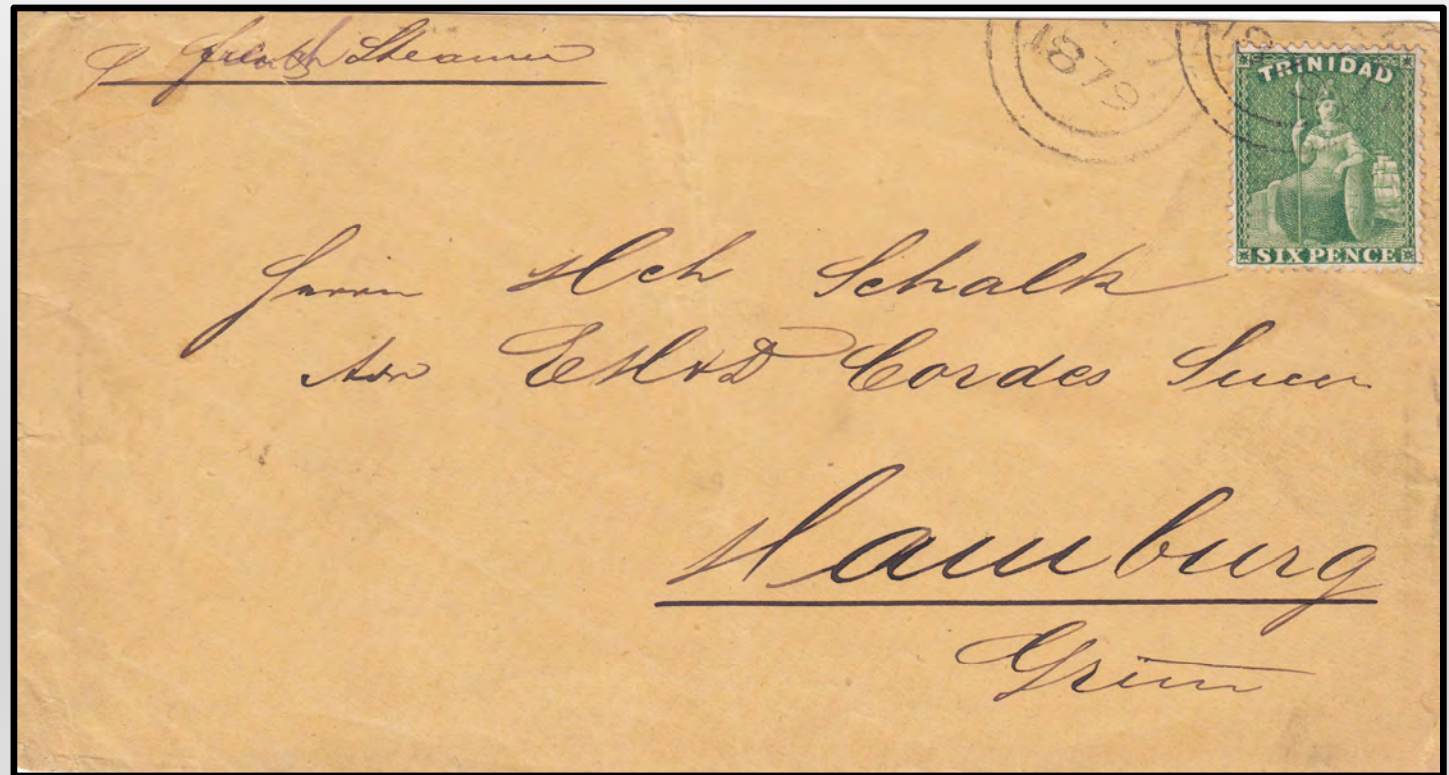 p French Steamer
1879
TRINIDAD
SIX PENCE
Herrn Hch Schalk
EH & D Cordes Succr
Hamburg
Grimm